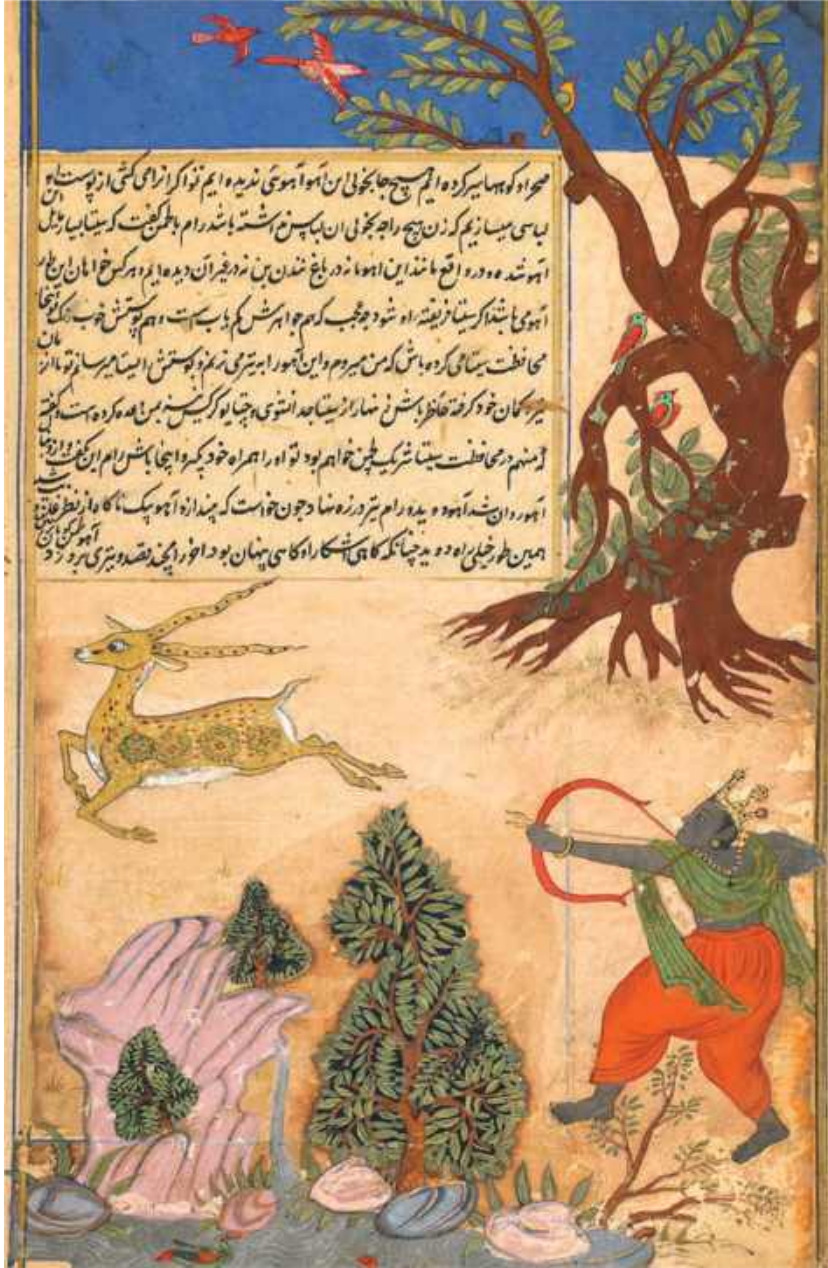 صحرا و کوهها سیر کرده ایم هیچ جا بخوبی این آهو آهوئی ندیده ایم تو اگر از امی کشی از پوست او
لباسی میسازیم که زن هیچ راجه بخوبی ان لباس نداشته باشد رام بالچمن گفت که سیتا بسیار مایل این
آهو شده و در واقع مانند این آهو نه در باغ نندن بن نه در غیر آن دیده ایم و هر کس خواهان این طور
آهو می باشد اگر سیتا فریفته او شود چه عجب که هم جواهرش کم یاب است و هم پوستش خوب تو اینجا
محافظت سیتا می کرده باش که من میروم و این آهو را به تیر می زنم و پوستش را به سیتا میرسانم تو
تیر و کمان خود گرفته حاضر باش زنهار از سیتا جدا نشوی و جتایو کرکس بمن وعده کرده است و گفته
که منهم در محافظت سیتا شریک لچمن خواهم بود تو او را همراه خود بگیر و اینجا باش رام این گفت و از دنبال
آهو روان شد آهو دویده رام تیر در زه نهاد چون خواست که بیندازد آهو یک ناگاه از نظر غایب شد
همین طور خیلی راه دوید چنانکه گاهی آشکارا و گاهی پنهان بود آخر رام بخود تیری برو زد